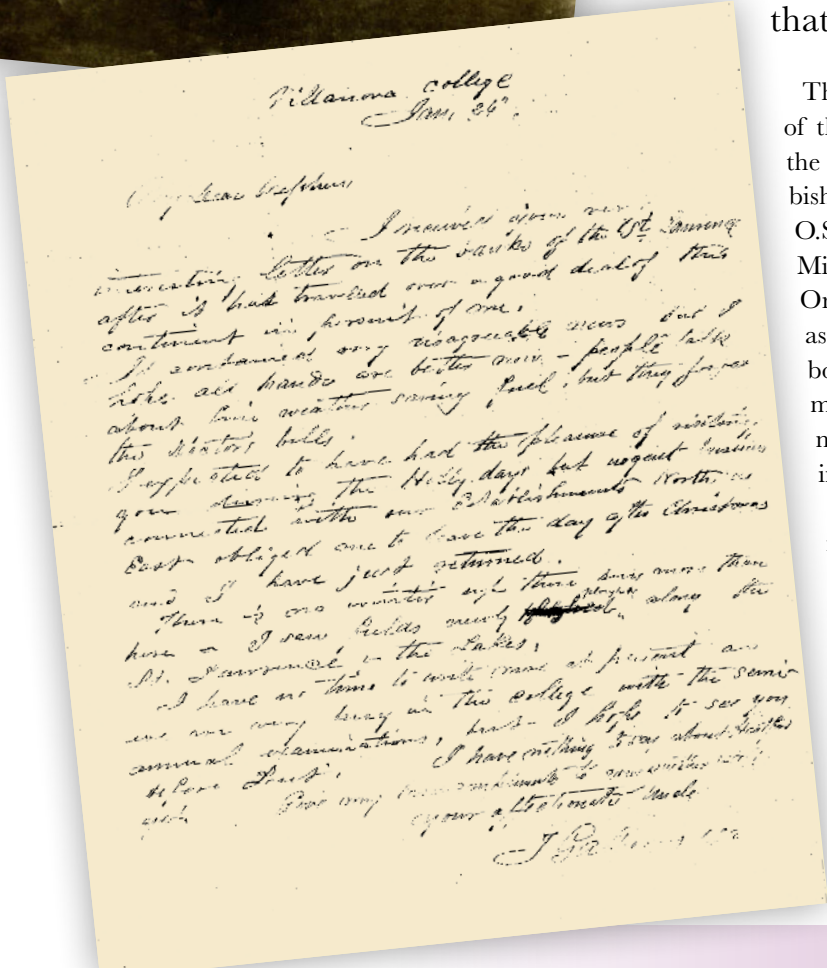 Villanova College
Jan. 26"
My dear Nephew
I received your very
interesting letter on the banks of the St. Lawrence
after it had traveled over a good deal of this
continent in pursuit of me.
It contained very disagreeable news but I
hope all hands are better now – people talk
about fine weather saving fuel, but they forget
the Doctors bills.
I expected to have had the pleasure of visiting
you during the Holly days but urgent business
connected with our Establishments North
East obliged me to leave the day after Christmas
and I have just returned.
There is no winter there any more than
here – I saw fields newly ploughed along the
St. Lawrence the Lakes.
I have no time to write more at present as
we are very busy in the college with the semi
annual examinations, but I hope to see you
before Lent. I have nothing to say about
Give my to
your affectionate uncle
J
that
Th
of th
the
bish
O.S
Mi
Or
as
bo
m
n
in